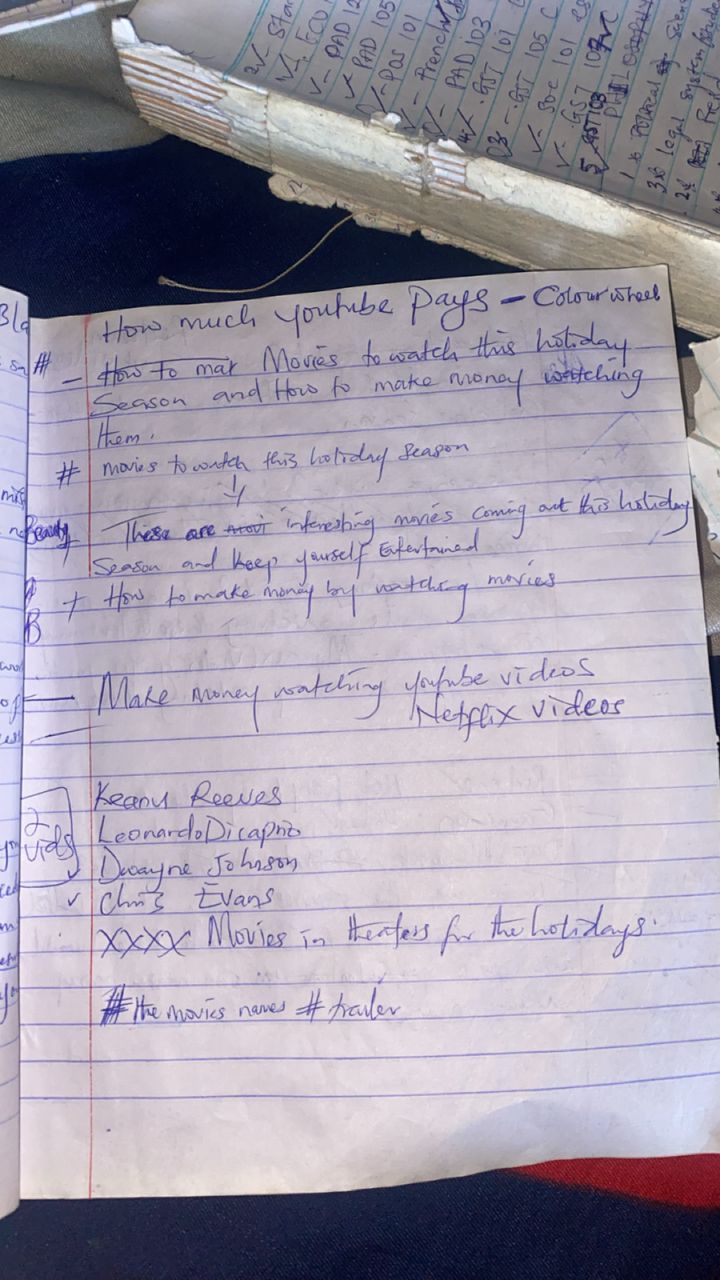 2✓- Sta
1✓- ECO
✓- PAD 12
✓ PAD 105
✓- POS 101
✓- French
✓- PAD 103
4✓- GST 101
03 - GST 105 C
✓- Soc 101
✓- GST 107
5 GST 103
PHILOSOPHY
1 Political
3 legal system
2
How much Youtube Pays - Colour wheel
# - How to mak Movies to watch this holiday
Season and How to make money watching
them.
# movies to watch this holiday season
These are movi interesting movies coming out this holiday
Season and keep yourself Entertained
+ How to make money by watching movies
B
Make money watching youtube videos
Netflix videos
2 vids
Keanu Reeves
Leonardo Dicaprio
Dwayne Johnson
✓ Chris Evans
XXXX Movies in theaters for the holidays.
# the movies names # trailer